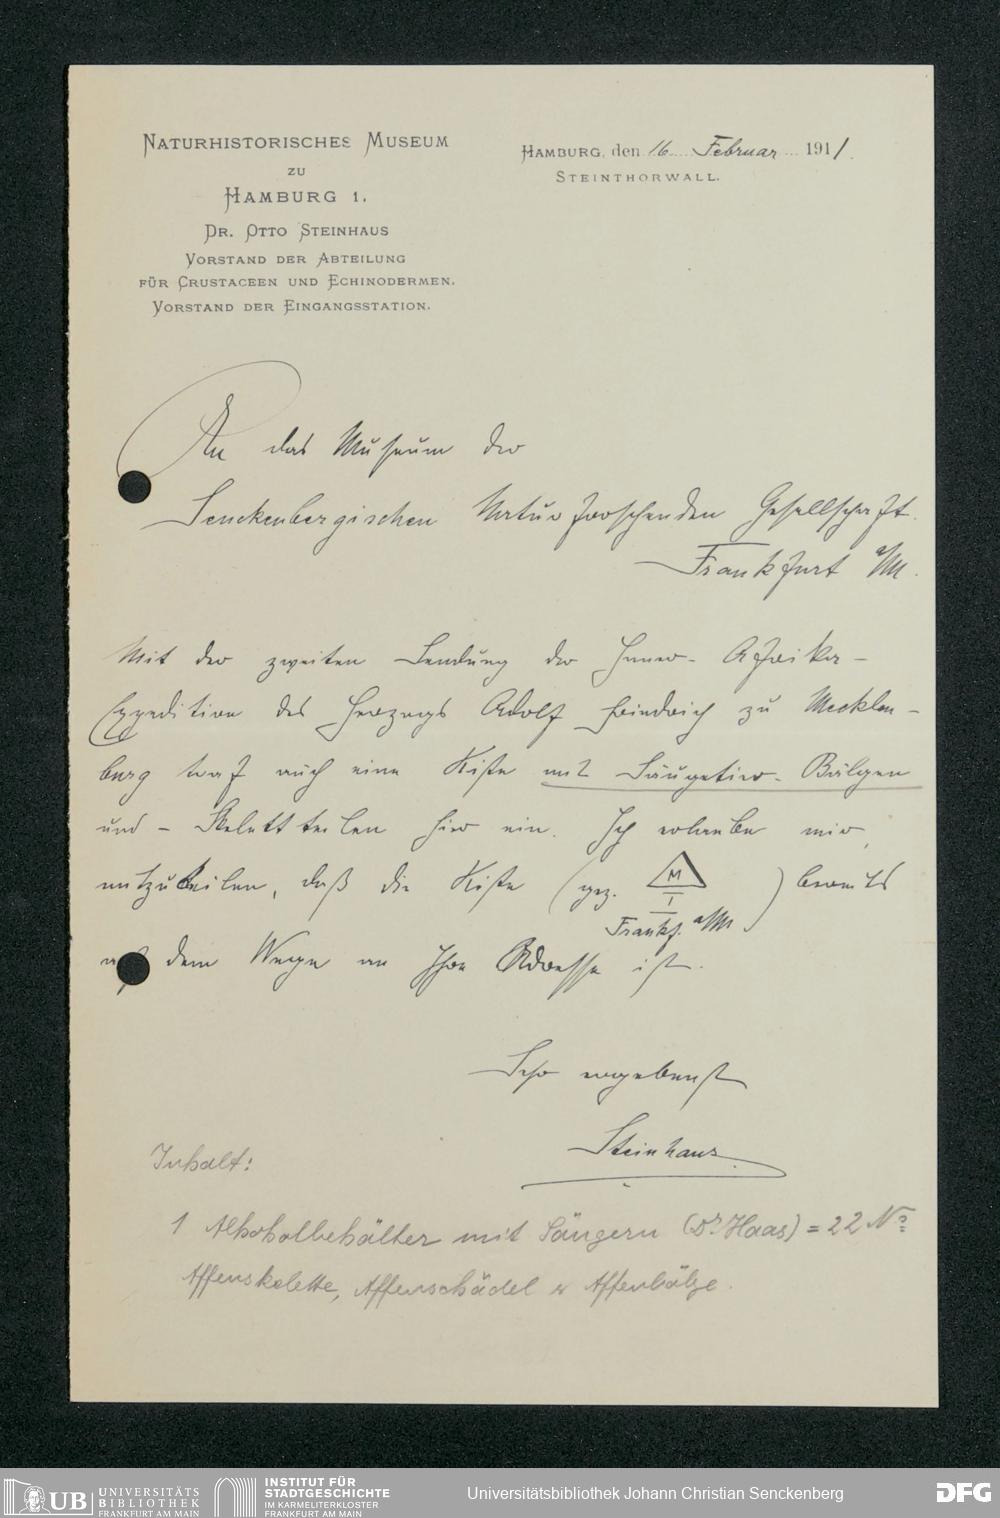 NATURHISTORISCHES MUSEUM
ZU
HAMBURG 1.
DR. OTTO STEINHAUS
VORSTAND DER ABTEILUNG
FÜR CRUSTACEEN UND ECHINODERMEN.
VORSTAND DER EINGANGSSTATION.
HAMBURG, den 16. Februar 1911.
STEINTHORWALL.
An das Museum der
Senckenbergischen Naturforschenden Gesellschaft.
Frankfurt a/M.
Mit der zweiten Sendung der Inner-Afrika-
Expedition des Herzogs Adolf Friedrich zu Mecklen-
burg traf auch eine Kiste mit Säugetier-Bälgen
und - Skelettteilen hier ein. Ich erlaube mir
mitzuteilen, daß die Kiste (gez. M I Frankf. a/M) bereits
auf dem Wege an Ihre Adresse ist.
Sehr ergebenst
Steinhaus
Inhalt:
1 Alkoholbehälter mit Säugern (Dr. Haas) = 22 No
Affenskelette, Affenschädel u Affenbälge.
UB UNIVERSITÄTS
BIBLIOTHEK
FRANKFURT AM MAIN
INSTITUT FÜR
STADTGESCHICHTE
IM KARMELITERKLOSTER
FRANKFURT AM MAIN
Universitätsbibliothek Johann Christian Senckenberg
DFG